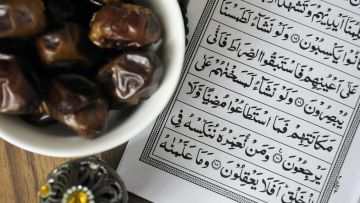 أَيْدِيهِمْ وَتَشْهَدُ
يَكْسِبُونَ ۝ وَلَوْ نَشَاءُ لَطَمَسْنَا
عَلَى أَعْيُنِهِمْ فَاسْتَبَقُوا الصِّرَاطَ فَأَنَّى
يُبْصِرُونَ ۝ وَلَوْ نَشَاءُ لَمَسَخْنَٰهُمْ عَلَى
مَكَانَتِهِمْ فَمَا اسْتَطَاعُوا مُضِيًّا وَلَا
يَرْجِعُونَ ۝ وَمَنْ نُعَمِّرْهُ نُنَكِّسْهُ فِي
الْخَلْقِ أَفَلَا يَعْقِلُونَ ۝ وَمَا عَلَّمْنَٰهُ